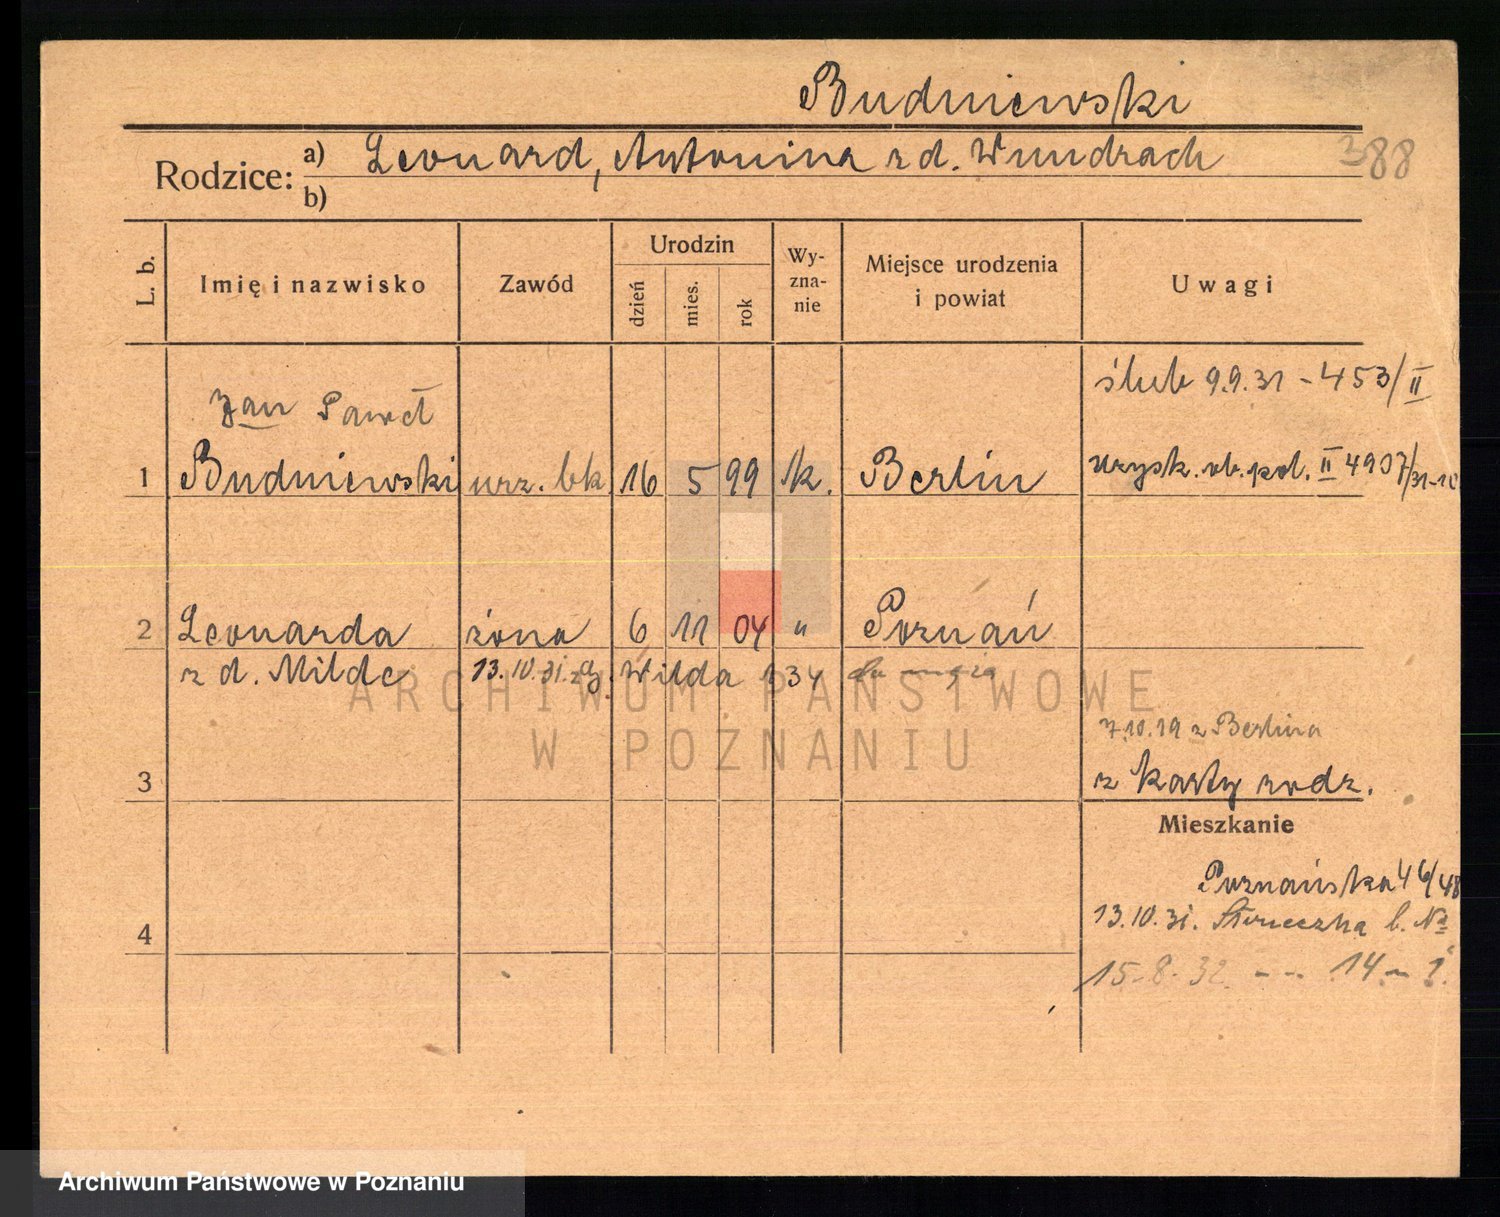 Budniewski
Rodzice: a) Leonard, Antonina z d. Wundrach
388
b)
L. b. Imię i nazwisko Zawód Urodzin dzień mies. rok Wy-zna-nie Miejsce urodzenia i powiat Uwagi
ślub 9.9.31 - 453/II
Jan Paweł
1 Budniewski urz. bk. 16 5 99 k. Berlin uzysk. ob. pol. II 4907/31-
2 Leonarda żona 6 11 04 " Poznań
z d. Milde 13.10.31. Wilda 134 do męża
ARCHIWUM PAŃSTWOWE
W POZNANIU
7.10.19 z Berlina
3 z karty rodz.
Mieszkanie
Poznańska 46/48
4 13.10.31. b. No
15.8.32. - - 14 -
Archiwum Państwowe w Poznaniu